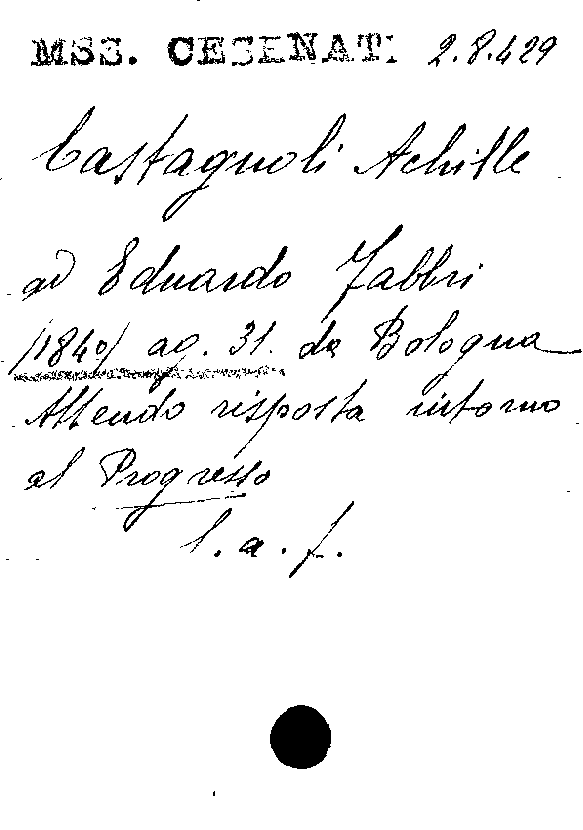 MSS. CESENATI 2.8.429
Castagnoli Achille
ad Eduardo Fabbri
/1840/ ag. 31. da Bologna
Attendo risposta intorno
al Progresso
l. a. f.